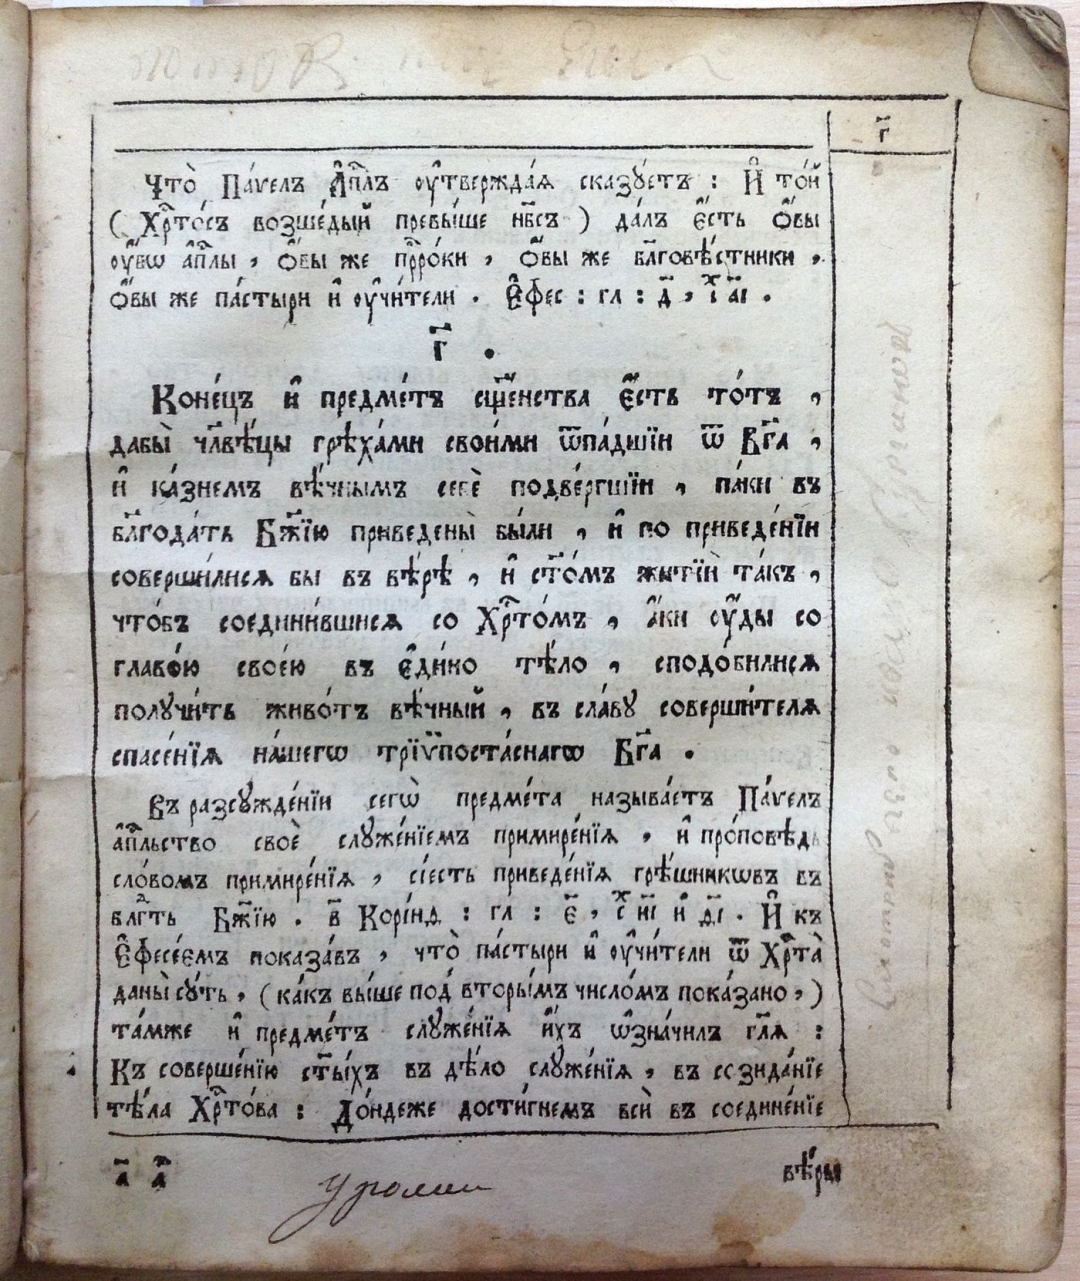 г҃
Что̀ Па́ѵелъ А҆пⷭ҇лъ ѹ҆твержда́ѧ сказꙋ́етъ : И҆ то́й
( Хрⷭ҇то́съ возше́дый превы́ше нб҃съ ) да́лъ є҆́сть ѻ҆́вы
ѹ҆́бѡ а҆пⷭ҇лы , ѻ҆́вы же прⷪ҇ро́ки , ѻ҆́вы же бл҃говѣ́стники ,
ѻ҆́вы же па́стыри и҆ ѹ҆чи́тели . Е҆фес : гл : д҃ , і҆ аі҃ .
г҃ .
Коне́цъ и҆ предме́тъ сщ҃е́нства є҆́сть то́тъ ,
дабы̀ чл҃вѣ́цы грѣха́ми свои́ми ѿпа́дшїи ѿ Бг҃а ,
и҆ ка́знемъ вѣ́чнымъ себѐ подве́ргшїи , па́ки въ
бл҃года́ть Бж҃їю приведены̀ бы́ли , и҆ по приведе́нїи
соверши́лисѧ бы въ вѣ́рѣ , и҆ ст҃о́мъ житїѝ та́къ ,
что́бъ соедини́вшисѧ со Хрⷭ҇то́мъ , а҆́ки ѹ҆́ды со
главо́ю свое́ю въ є҆ди́но тѣ́ло , сподо́билисѧ
получи́ть живо́тъ вѣ́чный , въ сла́вꙋ соверши́телѧ
спасе́нїѧ на́шегѡ трїѵпоста́снагѡ Бг҃а .
Въ разсꙋжде́нїи сегѡ̀ предме́та называ́етъ Па́ѵелъ
а҆пⷭ҇льство своѐ слꙋже́нїемъ примире́нїѧ , и҆ про́повѣдь
сло́вомъ примире́нїѧ , сі́есть приведе́нїѧ грѣ́шникѡвъ въ
бл҃гⷣть Бж҃їю . в҃ Корі́нѳ : гл : є҃ , і҆ иі҃ и҆ ѳі҃ . И҆ къ
Е҆фесе́емъ показа́въ , что̀ па́стыри и҆ ѹ҆чи́тели ѿ Хрⷭ҇та̀
даны̀ сꙋ́ть , ( ка́къ вы́ше под̾ вторы́мъ число́мъ пока́зано , )
та́мже и҆ предме́тъ слꙋже́нїѧ и҆́хъ ѡ҆зна́чилъ гл҃ѧ :
Къ соверше́нїю ст҃ы́хъ въ дѣ́ло слꙋже́нїѧ , въ созида́нїе
тѣ́ла Хрⷭ҇то́ва : До́ндеже дости́гнемъ всѝ въ соедине́нїе
а҃ а҃
вѣ́ры